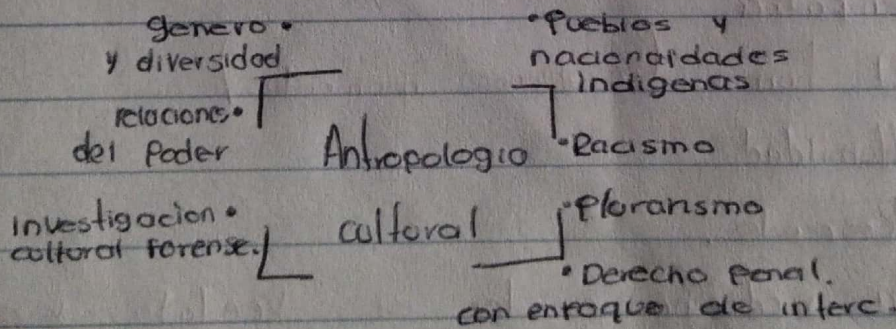 genero •
y diversidad
relaciones •
del Poder
Investigacion •
cultural forense.
Antropologia
cultural
• Pueblos y
nacionardades
Indigenas
• Racismo
• Plurarismo
• Derecho penal.
con enfoque de interc